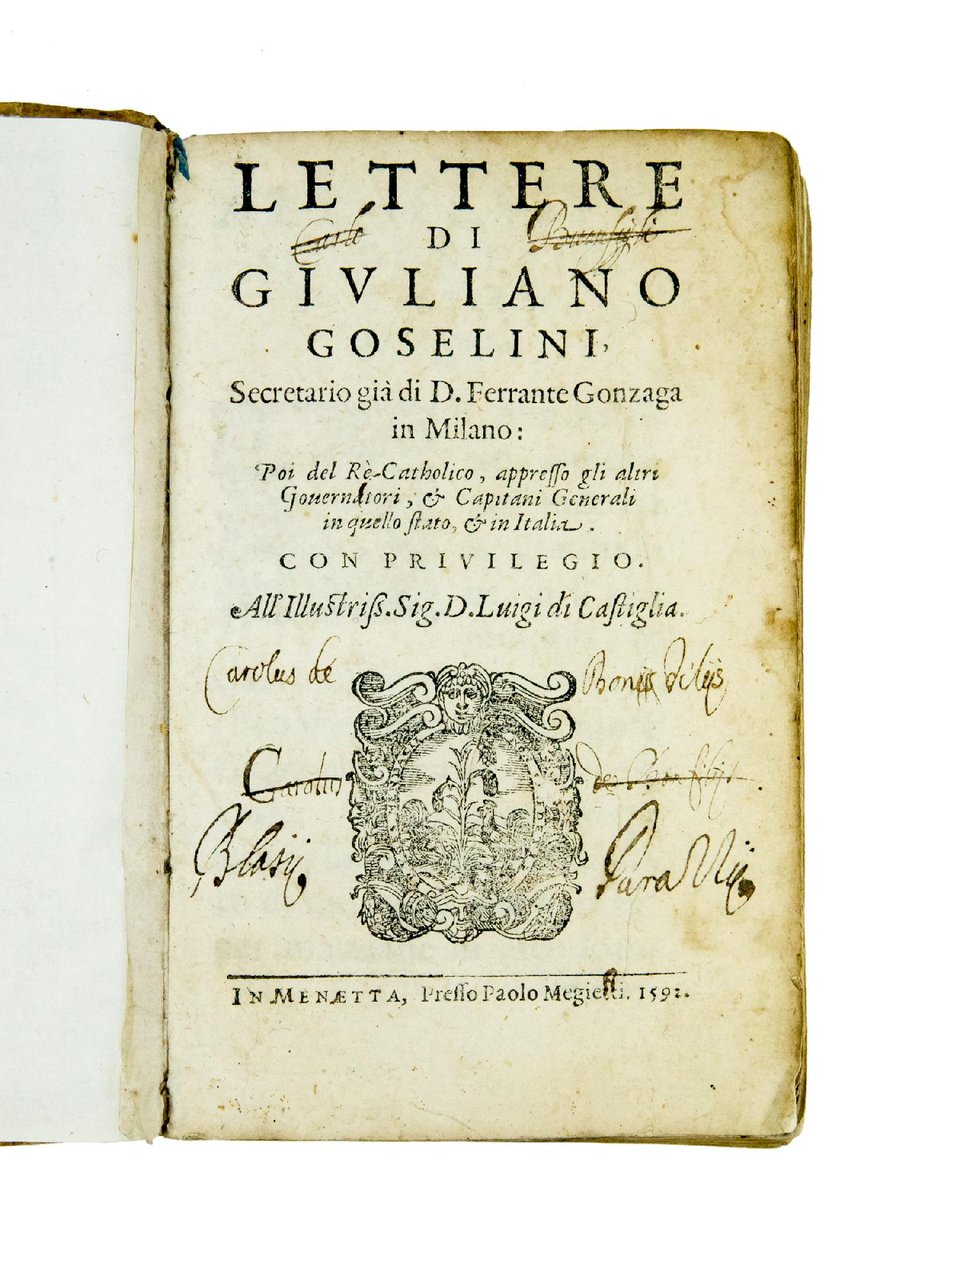 LETTERE
DI
GIVLIANO
GOSELINI,
Secretario già di D. Ferrante Gonzaga
in Milano:
Poi del Rè Catholico, appreſſo gli altri
Gouernatori, & Capitani Generali
in quello ſtato, & in Italia.
CON PRIVILEGIO.
All'Illuſtriſſ. Sig. D. Luigi di Caſtiglia.
Carolus de
Blasij
IN MENÆTTA, Preſſo Paolo Megietti. 1592.